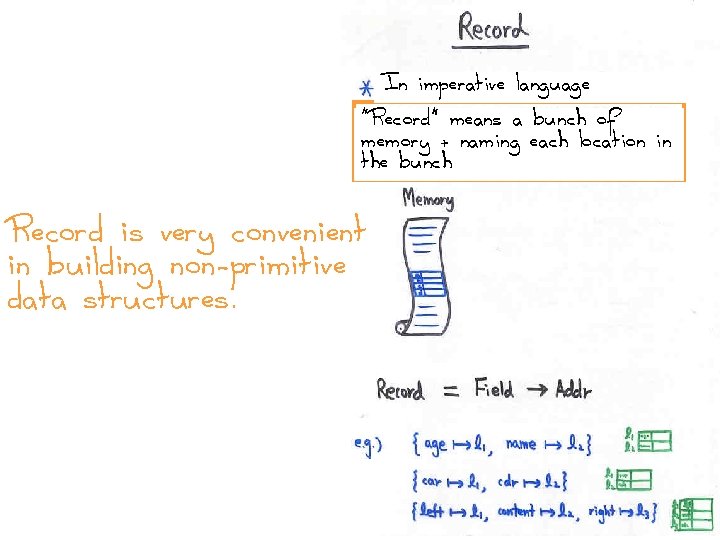 Record
* In imperative language
"Record" means a bunch of
memory + naming each location in
the bunch
Memory
Record is very convenient
in building non-primitive
data structures.
Record = Field → Addr
e.g.) { age ↦ l₁, name ↦ l₂}
l₁
l₂
{ car ↦ l₁, cdr ↦ l₂}
l₁
l₂
{left ↦ l₁, content ↦ l₂, right ↦ l₃}